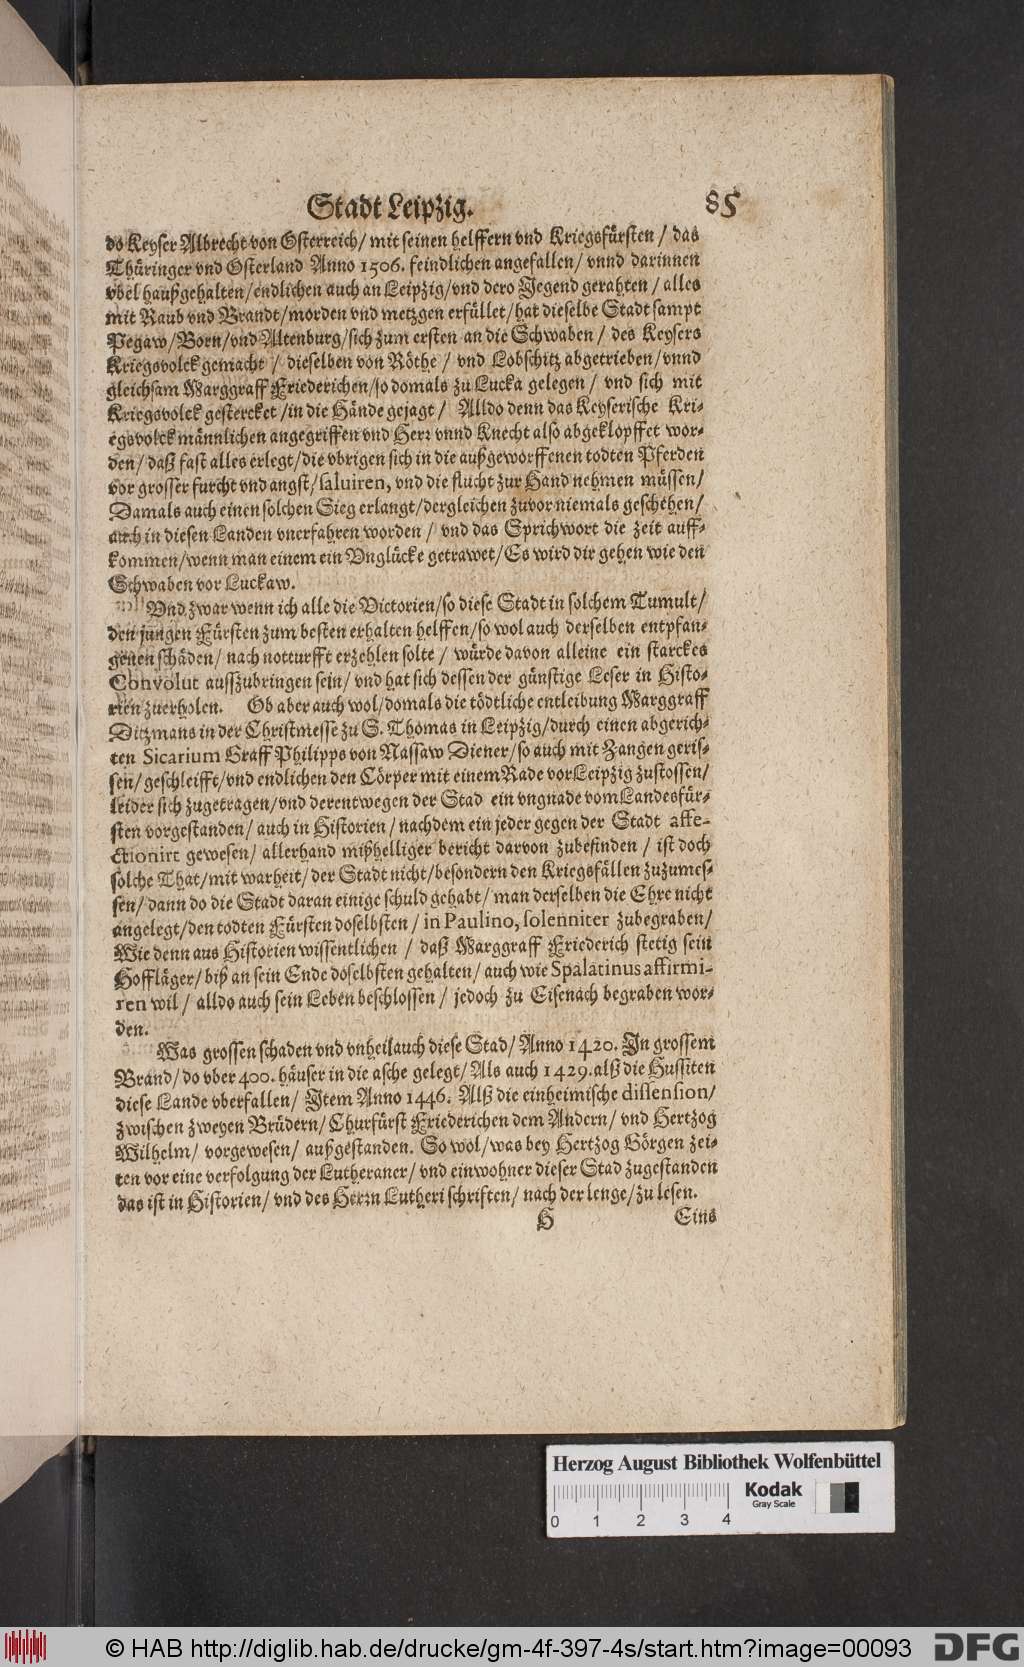 Stadt Leipzig. 85
do Keyser Albrecht von Osterreich/ mit seinen helffern vnd Kriegsfürsten / das
Thüringer vnd Osterland Anno 1506. feindlichen angefallen/ vnnd darinnen
vbel haußgehalten/endlichen auch an Leipzig/vnd dero Jegend gerahten / alles
mit Raub vnd Brandt/morden vnd metzgen erfüllet/hat dieselbe Stadt sampt
Pegaw/Born/vnd Altenburg/sich zum ersten an die Schwaben / des Keysers
Kriegsvolck gemacht / dieselben von Röthe / vnd Lobschitz abgetrieben/vnnd
gleichsam Marggraff Friederichen/so domals zu Lucka gelegen / vnd sich mit
Kriegsvolck gestercket /in die Hände gejagt / Alldo denn das Keyserische Kri-
egsvolck männlichen angegriffen vnd Herr vnnd Knecht also abgeklopffet wor-
den/ daß fast alles erlegt/die vbrigen sich in die außgeworffenen todten Pferden
vor grosser furcht vnd angst/salviren, vnd die flucht zur Hand nehmen müssen/
Damals auch einen solchen Sieg erlangt/dergleichen zuvor niemals geschehen/
auch in diesen Landen vnerfahren worden / vnd das Sprichwort die zeit auff-
kommen/wenn man einem ein Vnglücke getrawet/Es wird dir gehen wie den
Schwaben vor Luckaw.
Vnd zwar wenn ich alle die Victorien/so diese Stadt in solchem Tumult/
den jungen Fürsten zum besten erhalten helffen/so wol auch derselben entpfan-
genen schäden/ nach notturfft erzehlen solte / würde davon alleine ein starckes
Convolut ausszubringen sein/ vnd hat sich dessen der günstige Leser in Histo-
rien zuerholen. Ob aber auch wol/domals die tödtliche entleibung Marggraff
Ditzmans in der Christmesse zu S. Thomas in Leipzig/durch einen abgerich-
ten Sicarium Graff Philipps von Nassaw Diener/so auch mit Zangen geris-
sen/geschleifft/vnd endlichen den Cörper mit einem Rade vor Leipzig zustossen/
leider sich zugetragen/vnd derentwegen der Stad ein vngnade vom Landesfür-
sten vorgestanden/ auch in Historien / nachdem ein jeder gegen der Stadt affe-
ctionirt gewesen/ allerhand mißhelliger bericht darvon zubefinden / ist doch
solche That/mit warheit/der Stadt nicht/besondern den Kriegsfällen zuzumes-
sen/ dann do die Stadt daran einige schuld gehabt/ man derselben die Ehre nicht
angelegt/den todten Fürsten doselbsten / in Paulino, solenniter zubegraben/
Wie denn aus Historien wissentlichen / daß Marggraff Friederich stetig sein
Hoffläger/biß an sein Ende doselbsten gehalten/ auch wie Spalatinus affirmi-
ren wil / alldo auch sein Leben beschlossen / jedoch zu Eisenach begraben wor-
den.
Was grossen schaden vnd vnheil auch diese Stad/ Anno 1420. In grossem
Brand/ do vber 400. häuser in die asche gelegt/ Als auch 1429. alß die Hussiten
diese Lande vberfallen/ Item Anno 1446. Alß die einheimische dissension/
zwischen zweyen Brüdern/ Churfürst Friederichen dem Andern/ vnd Hertzog
Wilhelm/ vorgewesen/ außgestanden. So wol/was bey Hertzog Görgen zei-
ten vor eine verfolgung der Lutheraner/ vnd einwohner dieser Stad zugestanden
das ist in Historien/ vnd des Herrn Lutheri schriften/ nach der lenge/zu lesen.
H Eins
Herzog August Bibliothek Wolfenbüttel
Kodak
Gray Scale
0 1 2 3 4
© HAB http://diglib.hab.de/drucke/gm-4f-397-4s/start.htm?image=00093 DFG